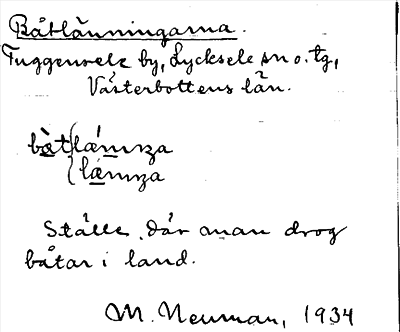 Båtlänningarna.
Tuggensele by, Lycksele sn o. tg,
Västerbottens län.
bàtlǽnnₙa
lǽnnₙa
Ställe där man drog
båtar i land.
M. Neuman, 1934